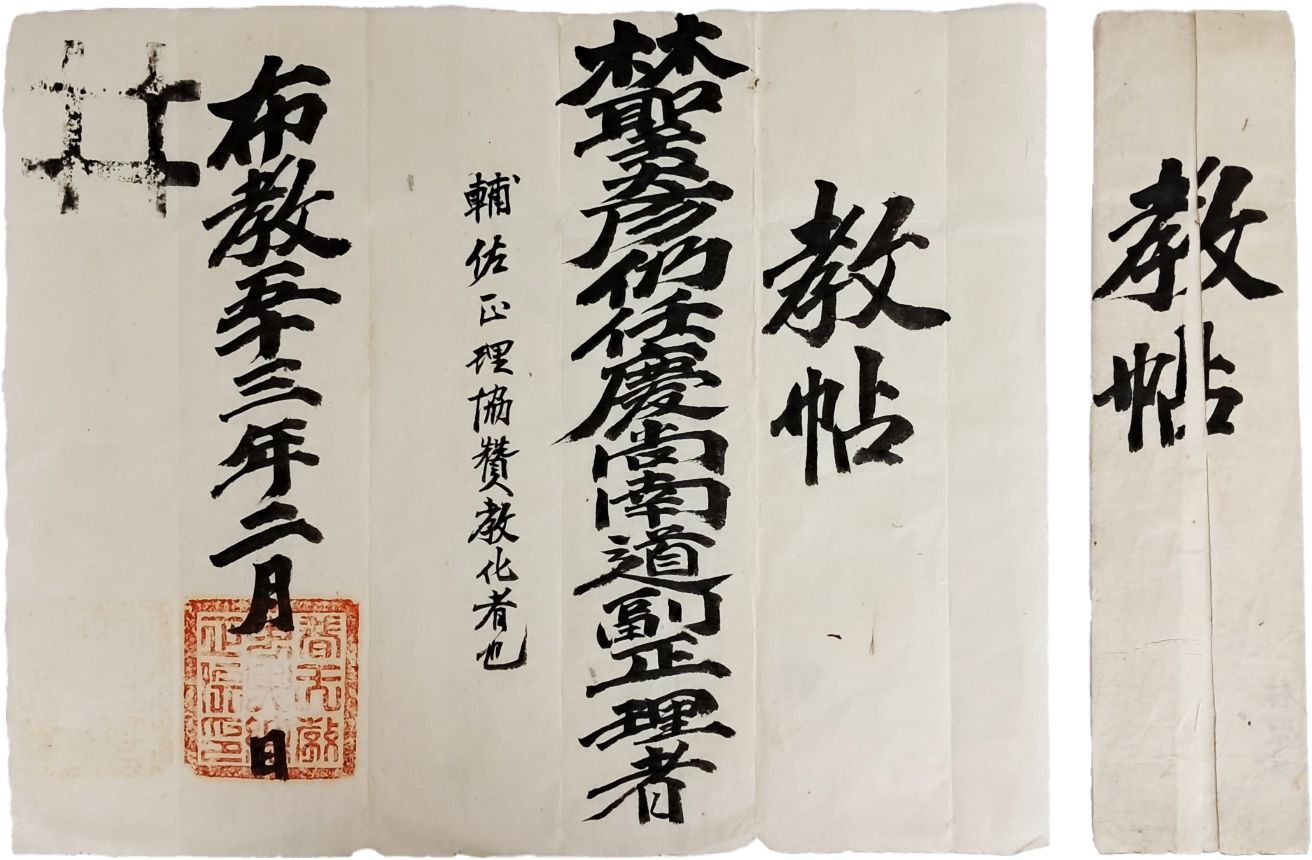 教帖
林聖彦仍任慶尚南道副正理者
輔佐正理協贊教化者也
布教五十三年二月 日
教帖